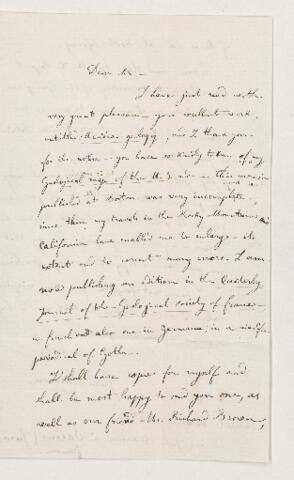 Dear Sir —
I have just read with
very great pleasure — your excellent work
entitled Acadian geology, and I thank you
for the notice you have so kindly taken of my
Geological map of the U. S. — This
published at Boston was very incomplete,
since then my travels in the Rocky Mountains and
California have enabled me to enlarge its
extent and to correct many errors. I am
now publishing an edition in the Quaterly
Journal of the Geological society of France
in french and also one in Germany, in a scientific
periodical of Gotha.
I shall have copies for myself and
shall be most happy to send you one, as
well as our friend Mr. Richard Brown,